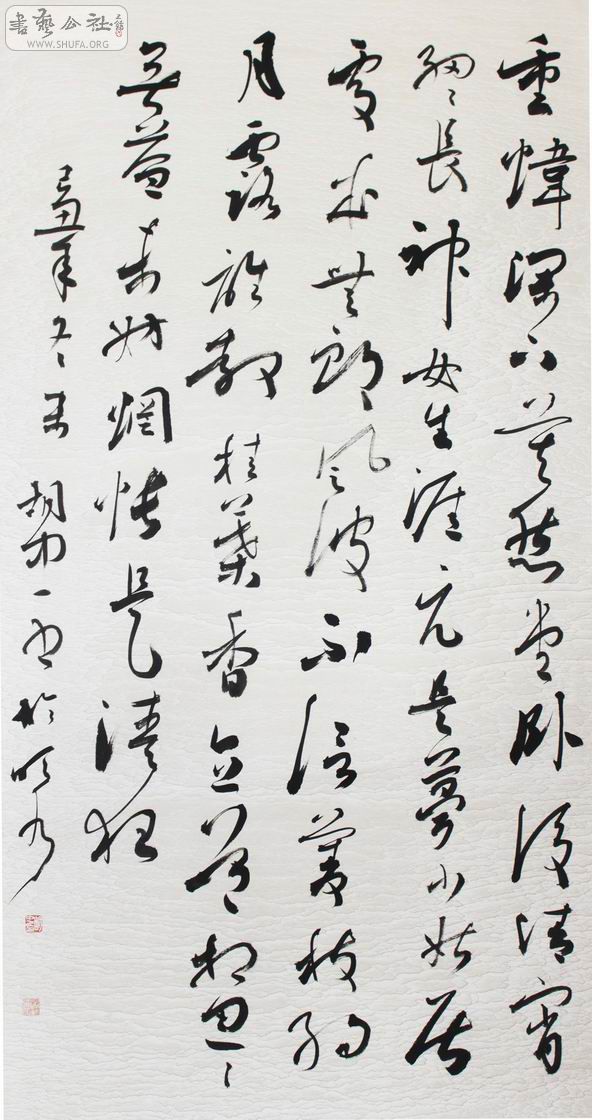 書藝公社
WWW.SHUFA.ORG
重幃深下莫愁堂卧後清宵
細〻長神女生涯元是夢小姑居
處本無郎風波不信菱枝弱
月露誰教桂葉香直道相思了
無益未妨惆悵是清狂
己丑年冬末 胡一書於